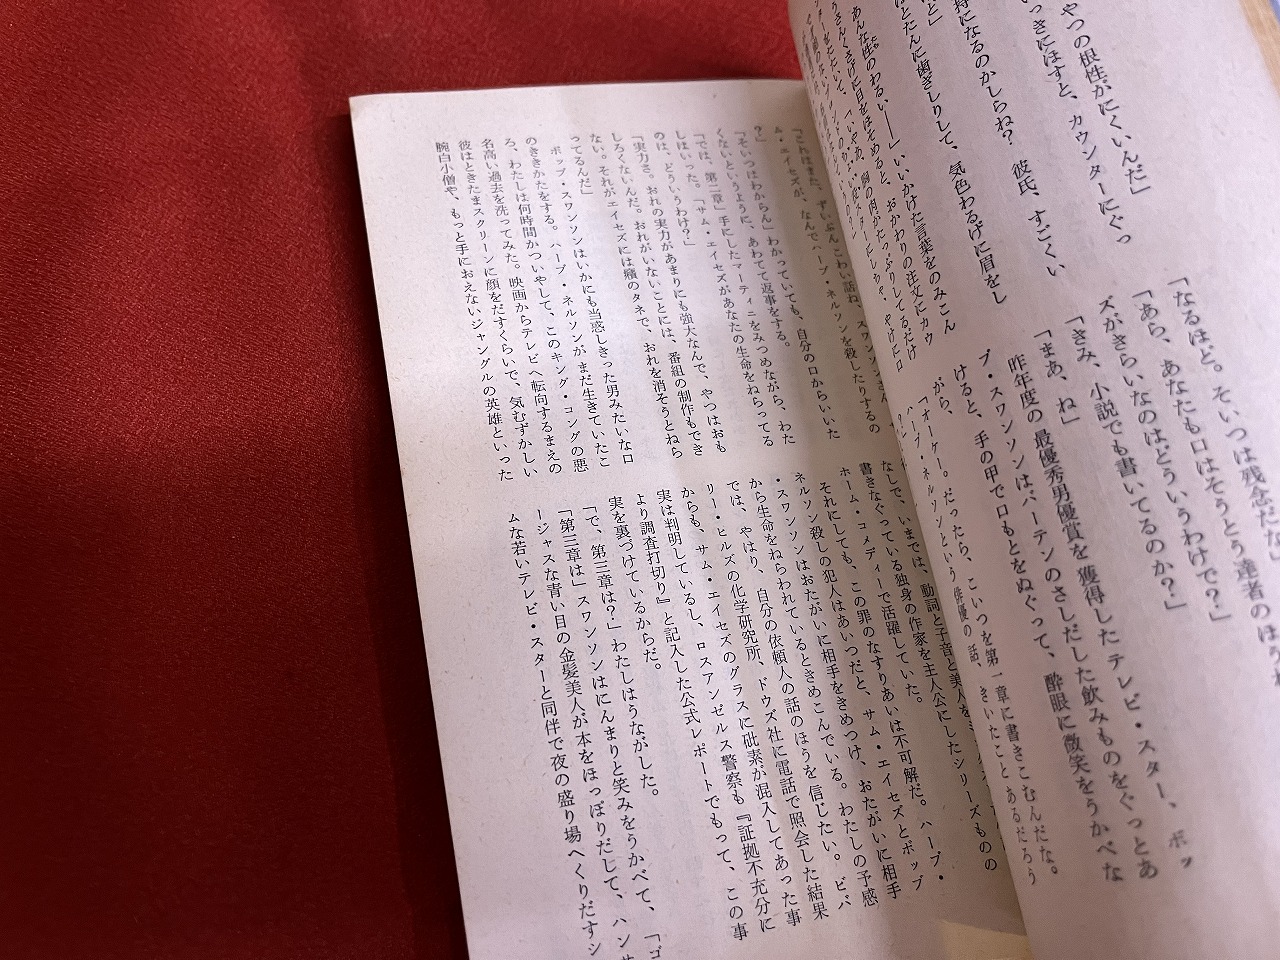 やつの根性がにくいんだ」
いっきにほすと、カウンターにぐっ
持になるのかしらね？　彼氏、すごくい
はとたんに歯ぎしりして、気色わるげに眉をし
あんな性のわるい――」いいかけた言葉をのみこん
うさんくさげに目をほそめると、おかわりの注文にカウ
「なるほど。そいつは残念だな
「あら、あなたも口はそうとう達者のほうね
ズがきらいなのはどういうわけで？」
「きみ、小説でも書いてるのか？」
「まあ、ね」
昨年度の最優秀男優賞を獲得したテレビ・スター、ポッ
プ・スワンソンはバーテンのさしだした飲みものをぐっとあ
けると、手の甲で口もとをぬぐって、酔眼に微笑をうかべな
がら、
「オーケー。だったら、こいつを第一章に書きこむんだな。
ハーブ・ネルソンという俳優の話、きいたことあるだろう
「これはまた、ずいぶんこわい話ね、スワンソンさん。サ
ム・エイゼズが、なんでハーブ・ネルソンを殺したりするの
？」
「そいつはわからん」わかっていても、自分の口からいいた
くないというように、あわてて返事をする。
「では、第二章」手にしたマーティニをみつめながら、わた
しはいった。「サム・エイゼズがあなたの生命をねらってる
のは、どういうわけ？」
「実力さ。おれの実力があまりにも強大なんで、やつはおも
しろくないんだ。おれがいないことには、番組の制作もでき
ない。それがエイゼズには癪のタネで、おれを消そうとねら
ってるんだ」
ポップ・スワンソンはいかにも当惑しきった男みたいな口
のききかたをする。ハーブ・ネルソンがまだ生きていたこ
ろ、わたしは何時間かついやして、このキング・コングの悪
名高い過去を洗ってみた。映画からテレビへ転向するまえの
彼はときたまスクリーンに顔をだすくらいで、気むずかしい
腕白小僧や、もっと手におえないジャングルの英雄といった
なしで、いまでは、動詞と子音と美人を
書きなぐっている独身の作家を主人公にしたシリーズものの
ホーム・コメディーで活躍していた。
それにしても、この罪のなすりあいは不可解だ。ハーブ・
ネルソン殺しの犯人はあいつだと、サム・エイゼズとポップ
・スワンソンはおたがいに相手をきめつけ、おたがいに相手
から生命をねらわれているときめこんでいる。わたしの予感
では、やはり、自分の依頼人の話のほうを信じたい。ビバ
リー・ヒルズの化学研究所、ドウズ社に電話で照会した結果
からも、サム・エイゼズのグラスに砒素が混入してあった事
実は判明しているし、ロスアンゼルス警察も『証拠不充分に
より調査打切り』と記入した公式レポートでもって、この事
実を裏づけているからだ。
「で、第三章は？」わたしはうながした。
「第三章は」スワンソンはにんまりと笑みをうかべて、「ゴ
ージャスな青い目の金髪美人が本をほっぽりだして、ハンサ
ムな若いテレビ・スターと同伴で夜の盛り場へくりだすシ